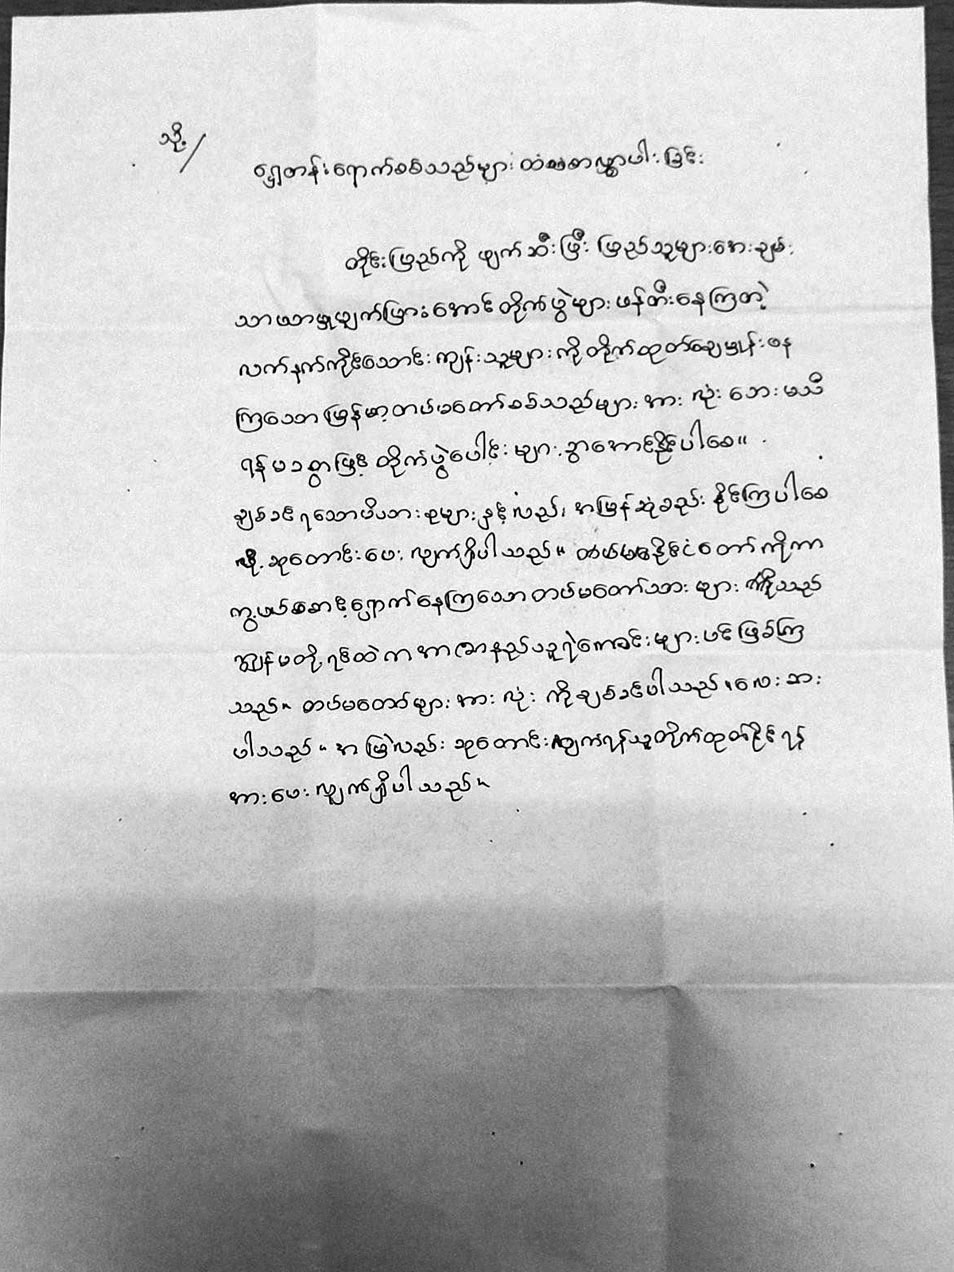 သို့/
ရှေ့တန်းရောက်စစ်သည်များ ထံစာလွှာပါးခြင်း
တိုင်းပြည်ကို ဖျက်ဆီးပြီး ပြည်သူများအေးချမ်း
သာယာမှုပျက်ပြားအောင် တိုက်ပွဲများ ဖန်တီးနေကြတဲ့
လက်နက်ကိုင်သောင်းကျန်းသူများကို တိုက်ထုတ်ချေမှုန်းနေ
ကြသော မြန်မာ့တပ်မတော်စစ်သည်များ အားလုံး ဘေးမသီ
ရန်မခဘွဲဖြင့် တိုက်ပွဲပေါင်းများစွာအောင်နိုင်ပါစေ။
ချစ်ခင်ရသောမိဘားစုများနှင့်လည်း အမြန်ဆုံစည်းနိုင်ကြပါစေ
လို့ ဆုတောင်းပေးလျှက်ရှိပါသည်။ တပ်မနှင့်နိုင်ငံတော်ကိုကာ
ကွယ်စောင့်ရှောက်နေကြသော တပ်မတော်သားများ ကိုသည်
ကျွန်မတို့ရင်ထဲက အာဇာနည်သူရဲကောင်းများပင်ဖြစ်ကြ
သည်။ တပ်မတော်များအားလုံးကိုချစ်ခင်ပါသည်၊လေးစား
ပါသည်။ အမြဲလည်းဆုတောင်းလျှက်ရန်သူတိုက်ထုတ်နိုင်ရန်
အားပေးလျှက်ရှိပါသည်။